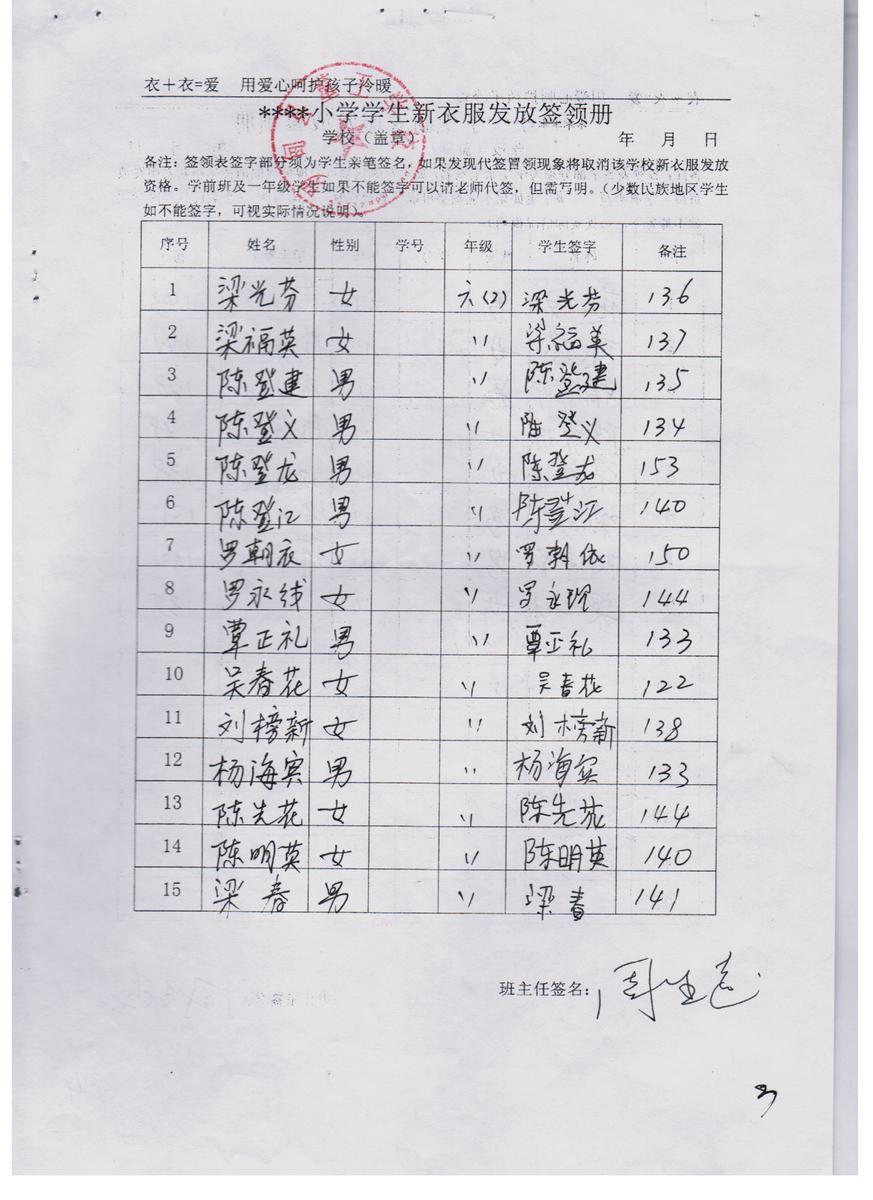 衣＋衣=爱 用爱心呵护孩子冷暖
****小学学生新衣服发放签领册
学校（盖章） 年 月 日
备注：签领表签字部分须为学生亲笔签名，如果发现代签冒领现象将取消该学校新衣服发放
资格。学前班及一年级学生如果不能签字可以请老师代签，但需写明。（少数民族地区学生
如不能签字，可视实际情况说明）。
序号 姓名 性别 学号 年级 学生签字 备注
1 梁光芬 女 六(2) 梁光芬 136
2 梁福英 女 〃 梁福美 137
3 陈登建 男 〃 陈登建 135
4 陈登义 男 〃 陈登义 134
5 陈登龙 男 〃 陈登龙 153
6 陈登江 男 〃 陈登江 140
7 罗朝衣 女 〃 罗朝依 150
8 罗永线 女 〃 罗永现 144
9 覃正礼 男 〃 覃正礼 133
10 吴春花 女 〃 吴春花 122
11 刘榜新 女 〃 刘榜新 138
12 杨海宾 男 〃 杨海宾 133
13 陈先花 女 〃 陈先花 144
14 陈明英 女 〃 陈明英 140
15 梁春 男 〃 梁春 141
班主任签名：周生
3